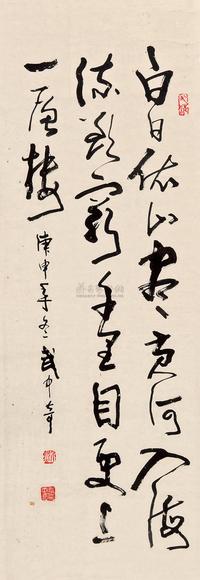 白日依山尽黄河入海
流欲穷千里目更上
一层楼
庚申年冬武中奇